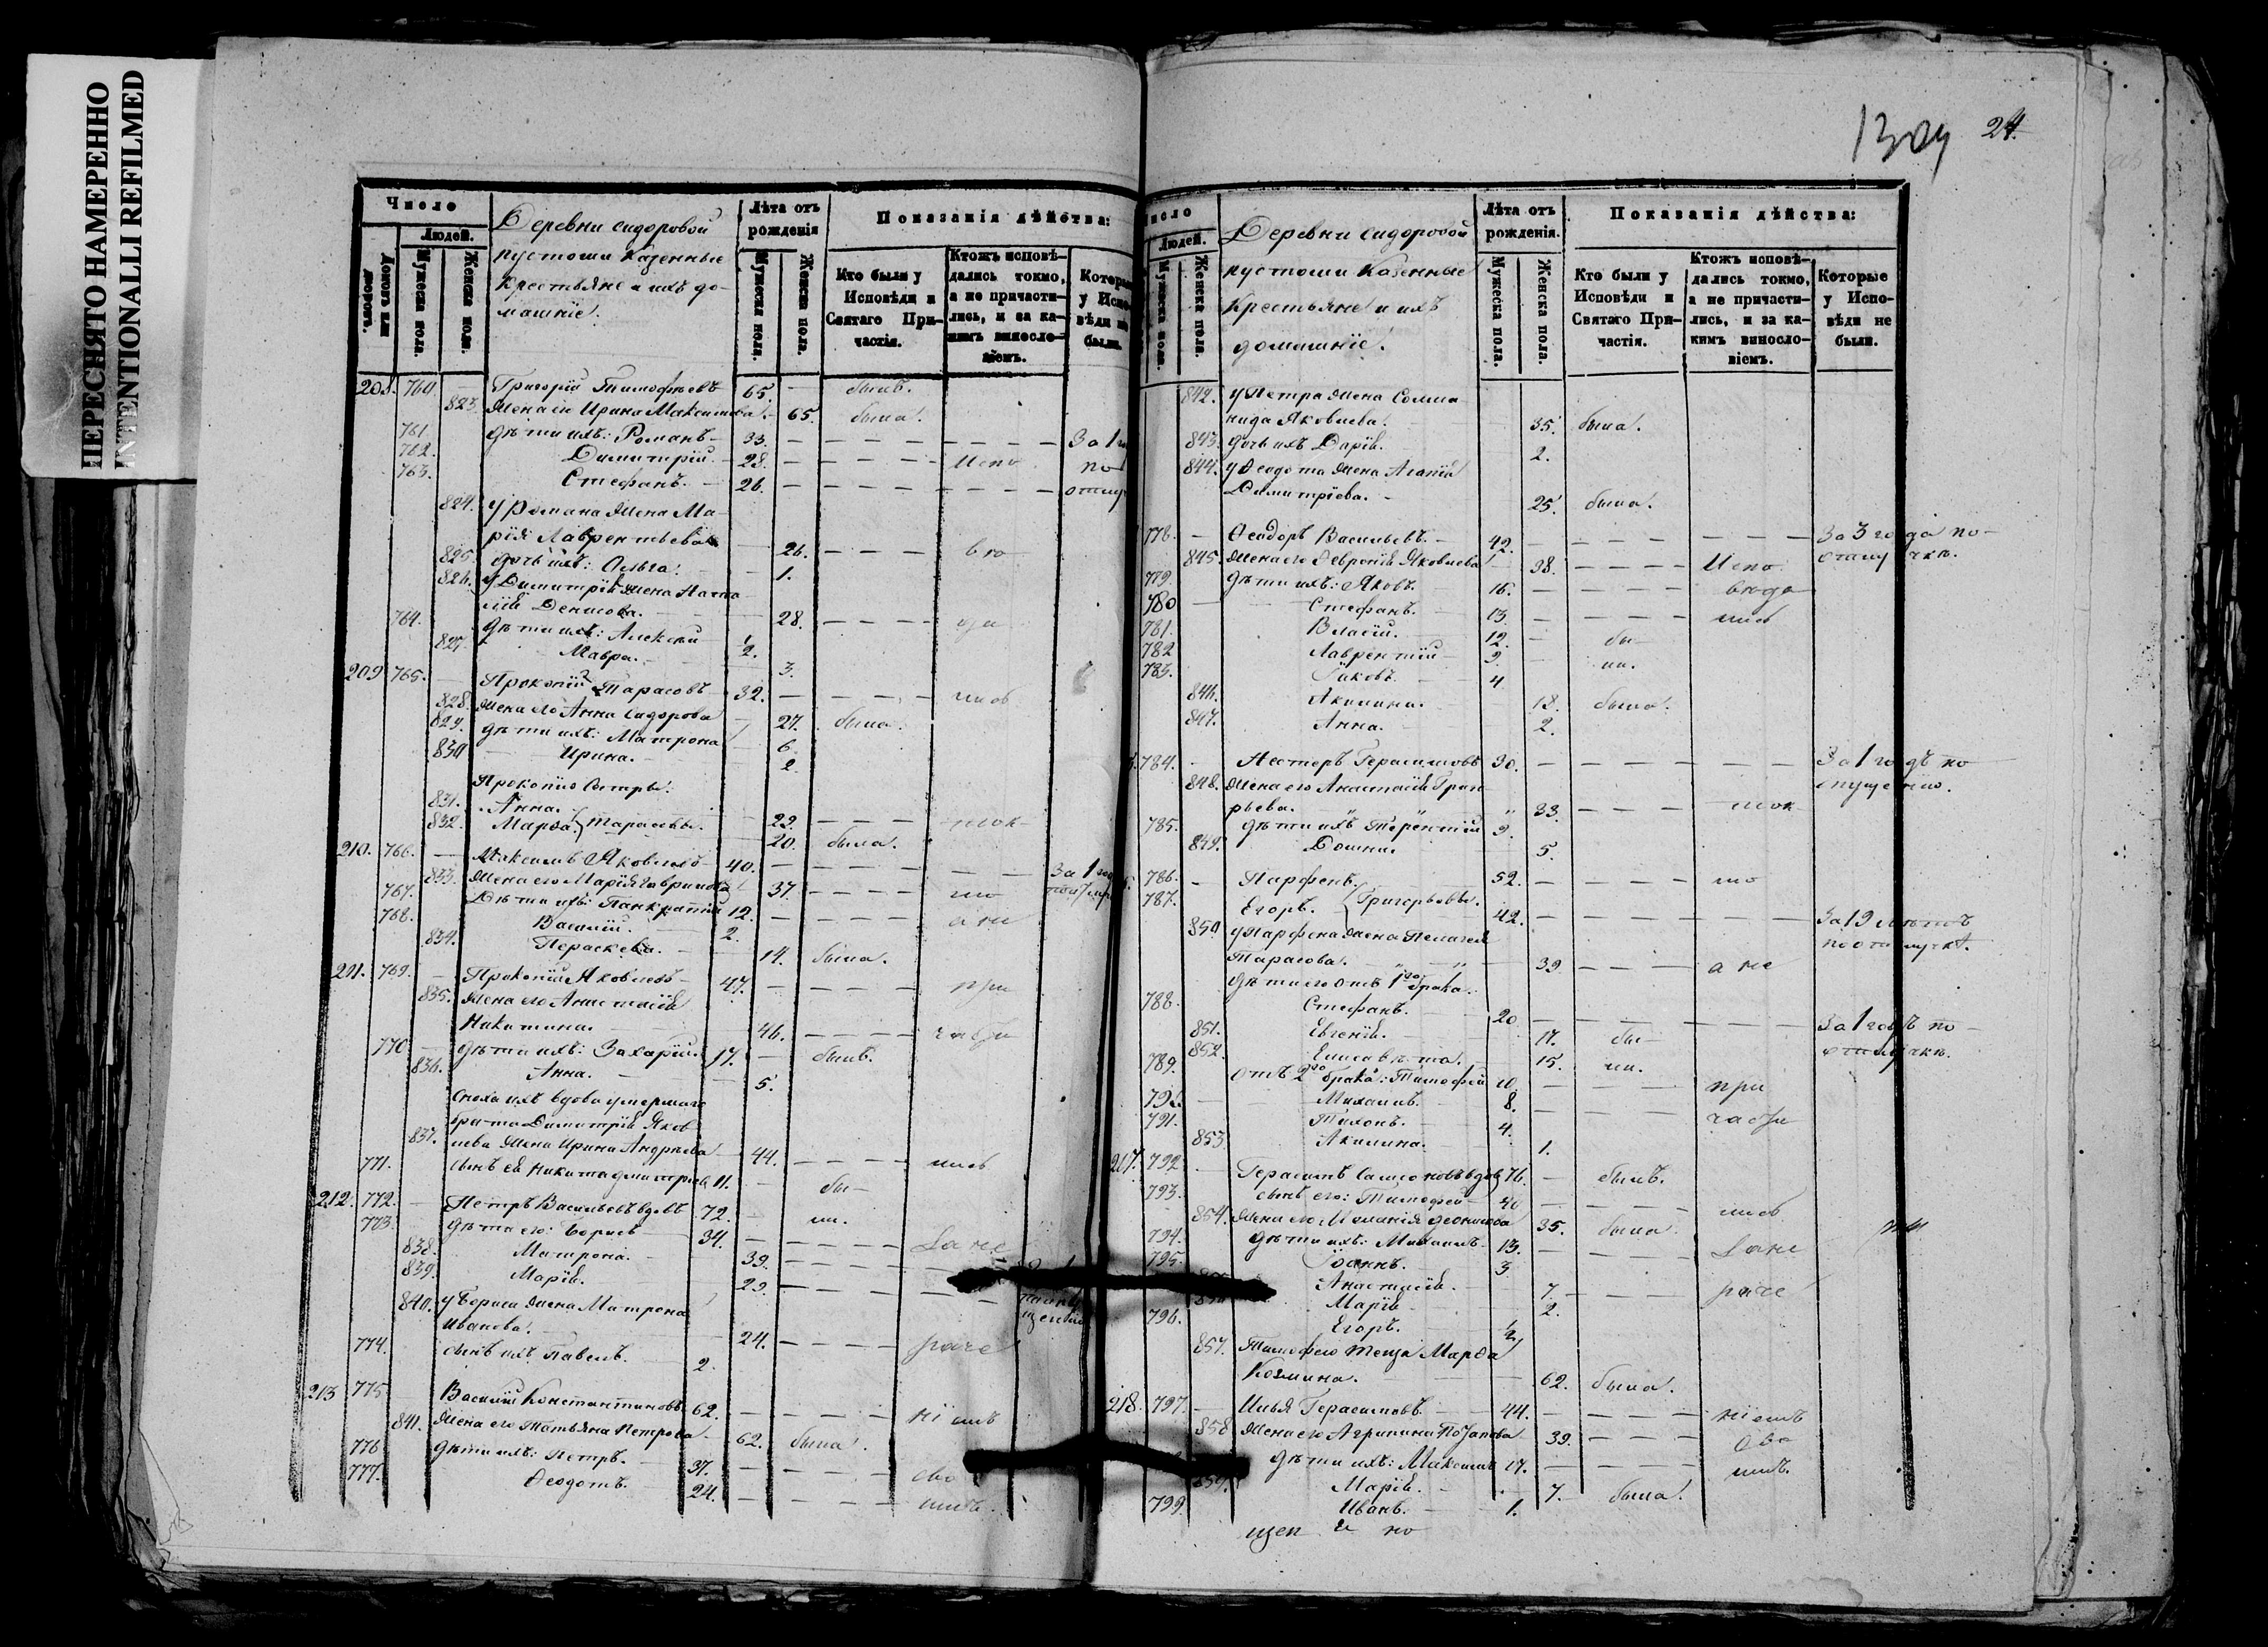 ПЕРЕСНЯТО НАМЕРЕННО
INTENTIONALLI REFILMED
1309 24.
Число
Людей.
Домовъ или дворовъ.
Мужеска пола.
Женска пола.
Деревни Сидоровой
пустоши казенные
крестьяне и ихъ до-
машніе.
Лѣта отъ
рожденія
Мужеска пола.
Женска пола.
Показанія дѣйства:
Кто были у
Исповѣди и
Святаго При-
частія.
Ктожъ исповѣ-
дались токмо,
а не причасти-
лись, и за ка-
кимъ винослові-
емъ.
208. 760. — Григорій Тимофѣевъ 65. — былъ.
823. Жена его Ирина Максимова. — 65. была.
761. дѣти ихъ: Романъ — 33. — За 1
762. Димитрій. — 28. — Испо по
763. Стефанъ. — 26. — отлу
824. у Романа жена Ма-
рія Лаврентьева — 26. — вѣ
825. дочь ихъ: Ольга. — 1.
826. у Димитрія жена Ната
лія Денисова. — 28.
764. дѣти ихъ: Алексѣй 1/2.
827. Мавра. — 3.
209 765. — Прокопій Тарасовъ 32. — лись
828. жена его Анна Сидорова — 27. была.
829. дѣти ихъ: Матрона 6.
830 Ирина. 2.
Прокопію сестры:
831. Анна.
832. Марѳа. Тарасовы. 22. — ток
20. была.
210. 766. — Максимъ Яковлевъ 40. — За 1 годъ
833. Жена его Марія Гаврилова 37. — мо
767. Дѣти ихъ: Панкратій 12. — а не
768. Василій. — 2.
834. Параскева. — 14. была.
211. 769. — Прокопій Яковлевъ — 47. — при
835. жена его Анастасія
Никитина. — 46. — части
770 дѣти ихъ: Захарій. 17. — былъ.
836. Анна. — 5.
Сноха ихъ вдова умершаго
брата Димитрія Яков
837. лева жена Ирина Андреева 44. — лись
771. сынъ ея Никита Дмитріев 11. — бы-
212. 772. — Петръ Васильевъ вдовъ 72. — ли.
773. дѣти его: Борисъ — 34. — за не
838. Матрона. — 39. —
839. Марія. — 23. —
840. у Бориса жена Матрона
Иванова. — 24. — раче
774. сынъ ихъ Павелъ. 2.
213 775 Василій Константиновъ 62. — ніемъ
841. Жена его Татьяна Петрова — 62. была.
776 дѣти ихъ: Петръ. — 37. — сво
777. Ѳеодотъ. — 24. — имъ.
Людей.
Мужеска пола.
Женска пола.
Деревни Сидоровой
пустоши казенные
крестьяне и ихъ
домашніе.
Лѣта отъ
рожденія.
Мужеска пола.
Женска пола.
Показанія дѣйства:
Кто были у
Исповѣди и
Святаго При-
частія.
Ктожъ исповѣ-
дались токмо,
а не причасти-
лись, и за ка-
кимъ виносло-
віемъ.
Которые
у Испо-
вѣди не
были.
842. у Петра жена Соломо
нида Яковлева. 35. была.
843. дочь ихъ Дарія. 2.
844. у Ѳеодота жена Агапія
Димитріева. — 25. была.
778. — Ѳеодоръ Васильевъ. — 42. — За 3 года по-
845. Жена его Ѳевронія Яковлева 38. — Испо отлучкѣ.
779. дѣти ихъ: Яковъ. — 16. — вѣда
780 — Стефанъ. — 13. — лись
781. Власій. — 12. — бы-
782 Лаврентій — 9. — ли.
783. Іаковъ. — 4.
846. Акилина. — 18. была.
847. Анна. — 2.
784. — Несторъ Герасимовъ 30. — За 1 годъ по
848. жена его Анастасія Григо опущенію.
рьева. — 33. — ток
785. дѣти ихъ Терентій 9.
849. Домна. 5.
786. — Парфенъ. 52. — мо
787. Егоръ. Григорьевы. 42. — За 19 лѣтъ
850 у Парфена жена Пелагея по отлучкѣ.
Тарасова. — 39. — а не
дѣти его отъ 1го брака:
788. Стефанъ. 20 — За 1 годъ по-
851. Евгенія. — 17. бы- отлучкѣ.
852. Елисавета. — 15. ли.
789. отъ 2го брака: Тимофей 10. — при
790. — Михаилъ. — 8. — части
791. Тихонъ. — 4.
853 Акилина. — 1.
217. 792 — Герасимъ Самсоновъ вдов 76. — былъ.
793. сынъ его: Тимофей — 40 — лись
854. жена его Меланія Леонтьева 35. была
794. дѣти ихъ: Михаилъ — 13. — за не
795. Іоаннъ. — 3.
Анастасія. — 7. — раче
Марія — 2.
796. Егоръ. 1/2
857. Тимофею теща Марѳа
Козмина. — 62. была.
218. 797. — Илья Герасимовъ. — 44. — ніемъ
858 Жена его Агрипина Потапова — 39. — сво
дѣти ихъ: Максимъ 17. — имъ.
859. Марія. — 7. — была.
799. Иванъ. — 1.